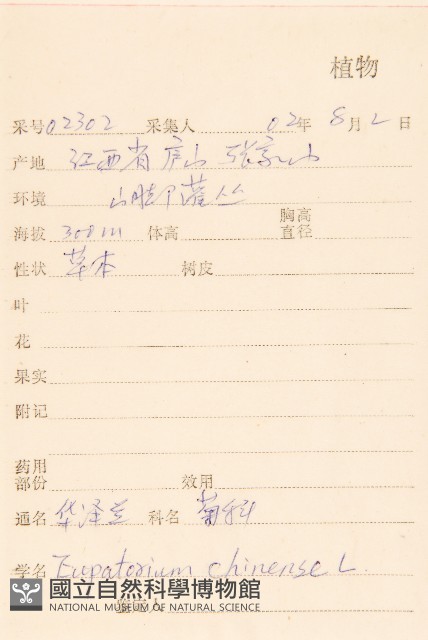 植物
采号 02302 采集人 02年 8月2日
产地 江西省庐山 张家山
环境 山脚下灌丛
海拔 308m 体高 胸高直径
性状 草本 树皮
叶
花
果实
附记
药用部份 效用
通名 华泽兰 科名 菊科
学名 Eupatorium chinense L.
國立自然科學博物館
NATIONAL MUSEUM OF NATURAL SCIENCE